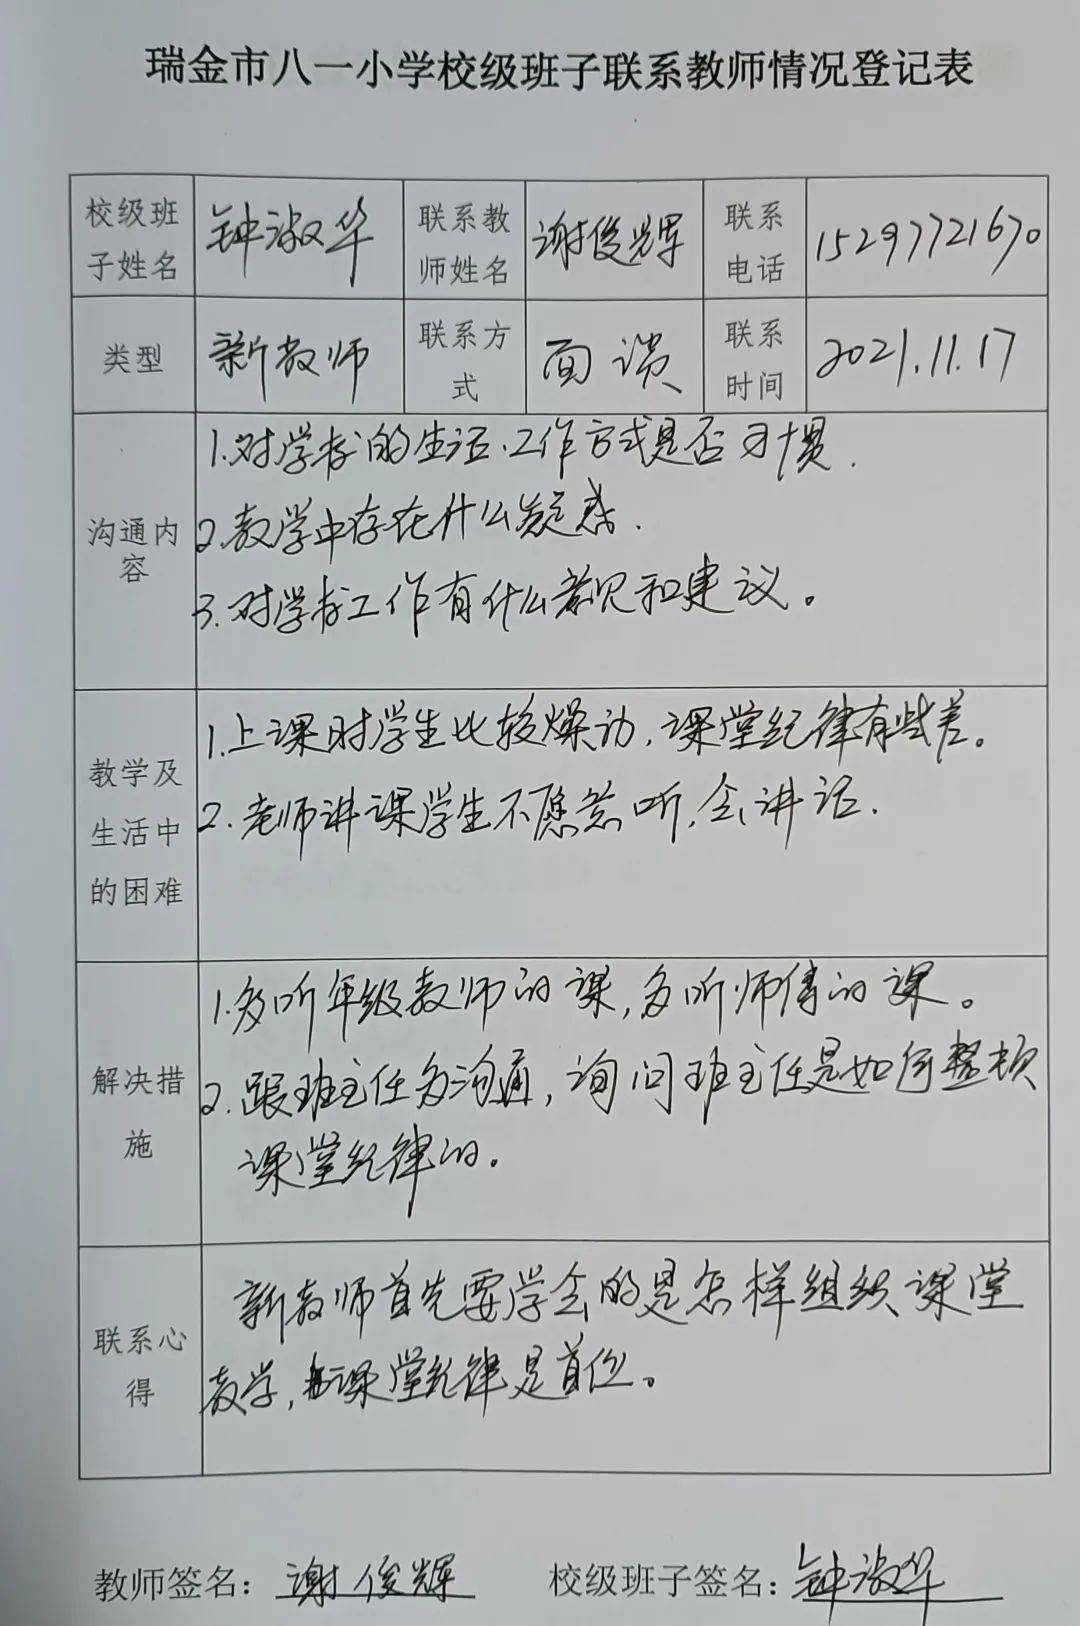 瑞金市八一小学校级班子联系教师情况登记表
校级班子姓名 钟淑华 联系教师姓名 谢俊辉 联系电话 15297721670
类型 新教师 联系方式 面谈 联系时间 2021.11.17
沟通内容
1.对学校的生活、工作方式是否习惯.
2.教学中存在什么疑惑.
3.对学校工作有什么意见和建议。
教学及生活中的困难
1.上课时学生比较燥动,课堂纪律有些差。
2.老师讲课学生不愿意听,会讲话.
解决措施
1.多听年级教师的课,多听师傅的课。
2.跟班主任多沟通,询问班主任是如何整顿
课堂纪律的。
联系心得
新教师首先要学会的是怎样组织课堂
教学,课堂纪律是首位。
教师签名:谢俊辉 校级班子签名:钟淑华